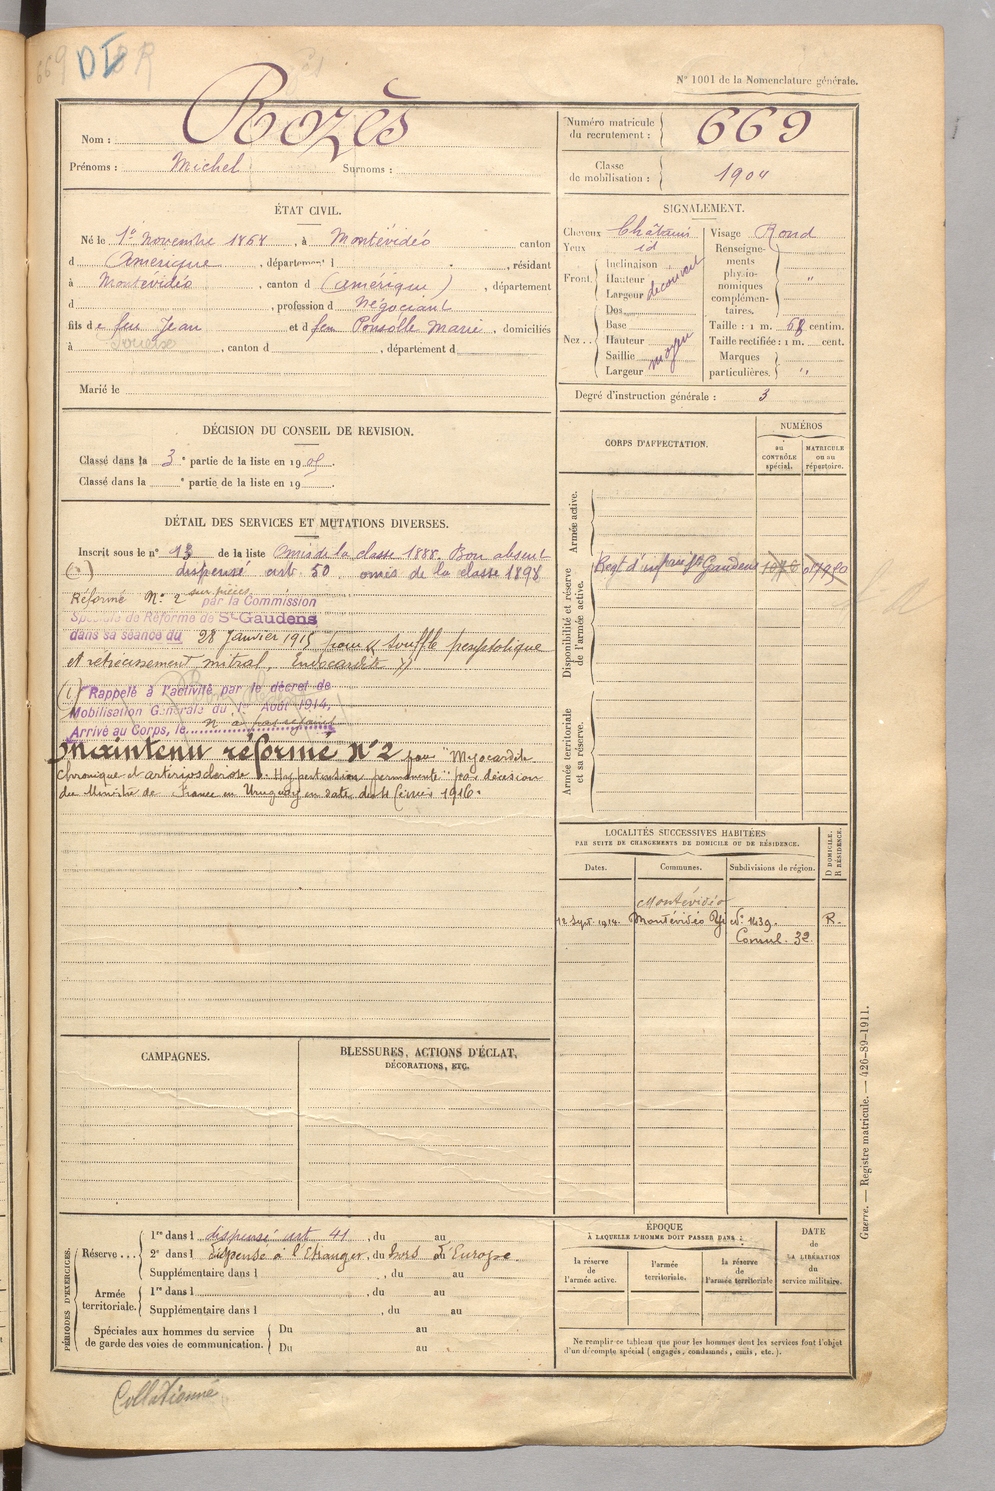 669 D R
N° 1001 de la Nomenclature générale.
Nom : Rozès
Prénoms : Michel Surnoms :
Numéro matricule du recrutement : 669
Classe de mobilisation : 1904
ÉTAT CIVIL.
Né le 1er novembre 1868, à Montévidéo canton
d Amérique, département, résidant
à Montévidéo, canton d (amérique), département
d , profession d Négociant
fils de feu Jean et d feu Ponsolle Marie, domiciliés
à , canton d , département d
Marié le
SIGNALEMENT.
Cheveux Châtains
Yeux id
Front. Inclinaison
Hauteur découvert
Largeur
Nez. Dos
Base
Hauteur moyen
Saillie
Largeur
Visage Rond
Renseignements physionomiques complémentaires. "
Taille : 1 m. 68 centim.
Taille rectifiée : 1 m. cent.
Marques particulières. "
Degré d'instruction générale : 3
DÉCISION DU CONSEIL DE REVISION.
Classé dans la 3e partie de la liste en 1905.
Classé dans la e partie de la liste en 19 .
DÉTAIL DES SERVICES ET MUTATIONS DIVERSES.
Inscrit sous le n° 13 de la liste Omis de la classe 1888. Bon absent
dispensé art. 50 omis de la classe 1898
Réformé N° 2 sur pièces par la Commission
Spéciale de Réforme de St Gaudens
dans sa séance du 28 Janvier 1915 pour « souffle
et rétrécissement mitral, Endocardite »
(1) Rappelé à l'activité par le décret de
Mobilisation Générale du 1er Août 1914,
Arrivé au Corps, le n'a pas rejoint
Maintenu réformé N° 2 pour "Myocardite
chronique et artériosclérose. Hypertension permanente" par décision
du Ministre de France en Uruguay en date du février 1916.
CORPS D'AFFECTATION.
NUMÉROS
au CONTRÔLE spécial.
MATRICULE ou au répertoire.
Armée active.
Disponibilité et réserve de l'armée active.
Regt d'infrie St Gaudens
Armée territoriale et sa réserve.
LOCALITÉS SUCCESSIVES HABITÉES
PAR SUITE DE CHANGEMENTS DE DOMICILE OU DE RÉSIDENCE.
Dates. Communes. Subdivisions de région. D DOMICILE. R RÉSIDENCE.
Montévidéo
12 Sept. 1914. Montévidéo N° 1439. R.
Consul. 32.
CAMPAGNES.
BLESSURES, ACTIONS D'ÉCLAT,
DÉCORATIONS, ETC.
PÉRIODES D'EXERCICES.
Réserve... 1re dans l dispensé art 41, du au
2e dans l Dispensé à l'Etranger, du hors au d'Europe.
Supplémentaire dans l , du au
Armée territoriale. 1re dans l , du au
Supplémentaire dans l , du au
Spéciales aux hommes du service de garde des voies de communication. Du au
Du au
ÉPOQUE
À LAQUELLE L'HOMME DOIT PASSER DANS :
la réserve de l'armée active.
l'armée territoriale.
la réserve de l'armée territoriale
DATE de LA LIBÉRATION du service militaire.
Ne remplir ce tableau que pour les hommes dont les services font l'objet
d'un décompte spécial (engagés, condamnés, omis, etc.).
Guerre. — Registre matricule. — 426-89-1911.
Collationné